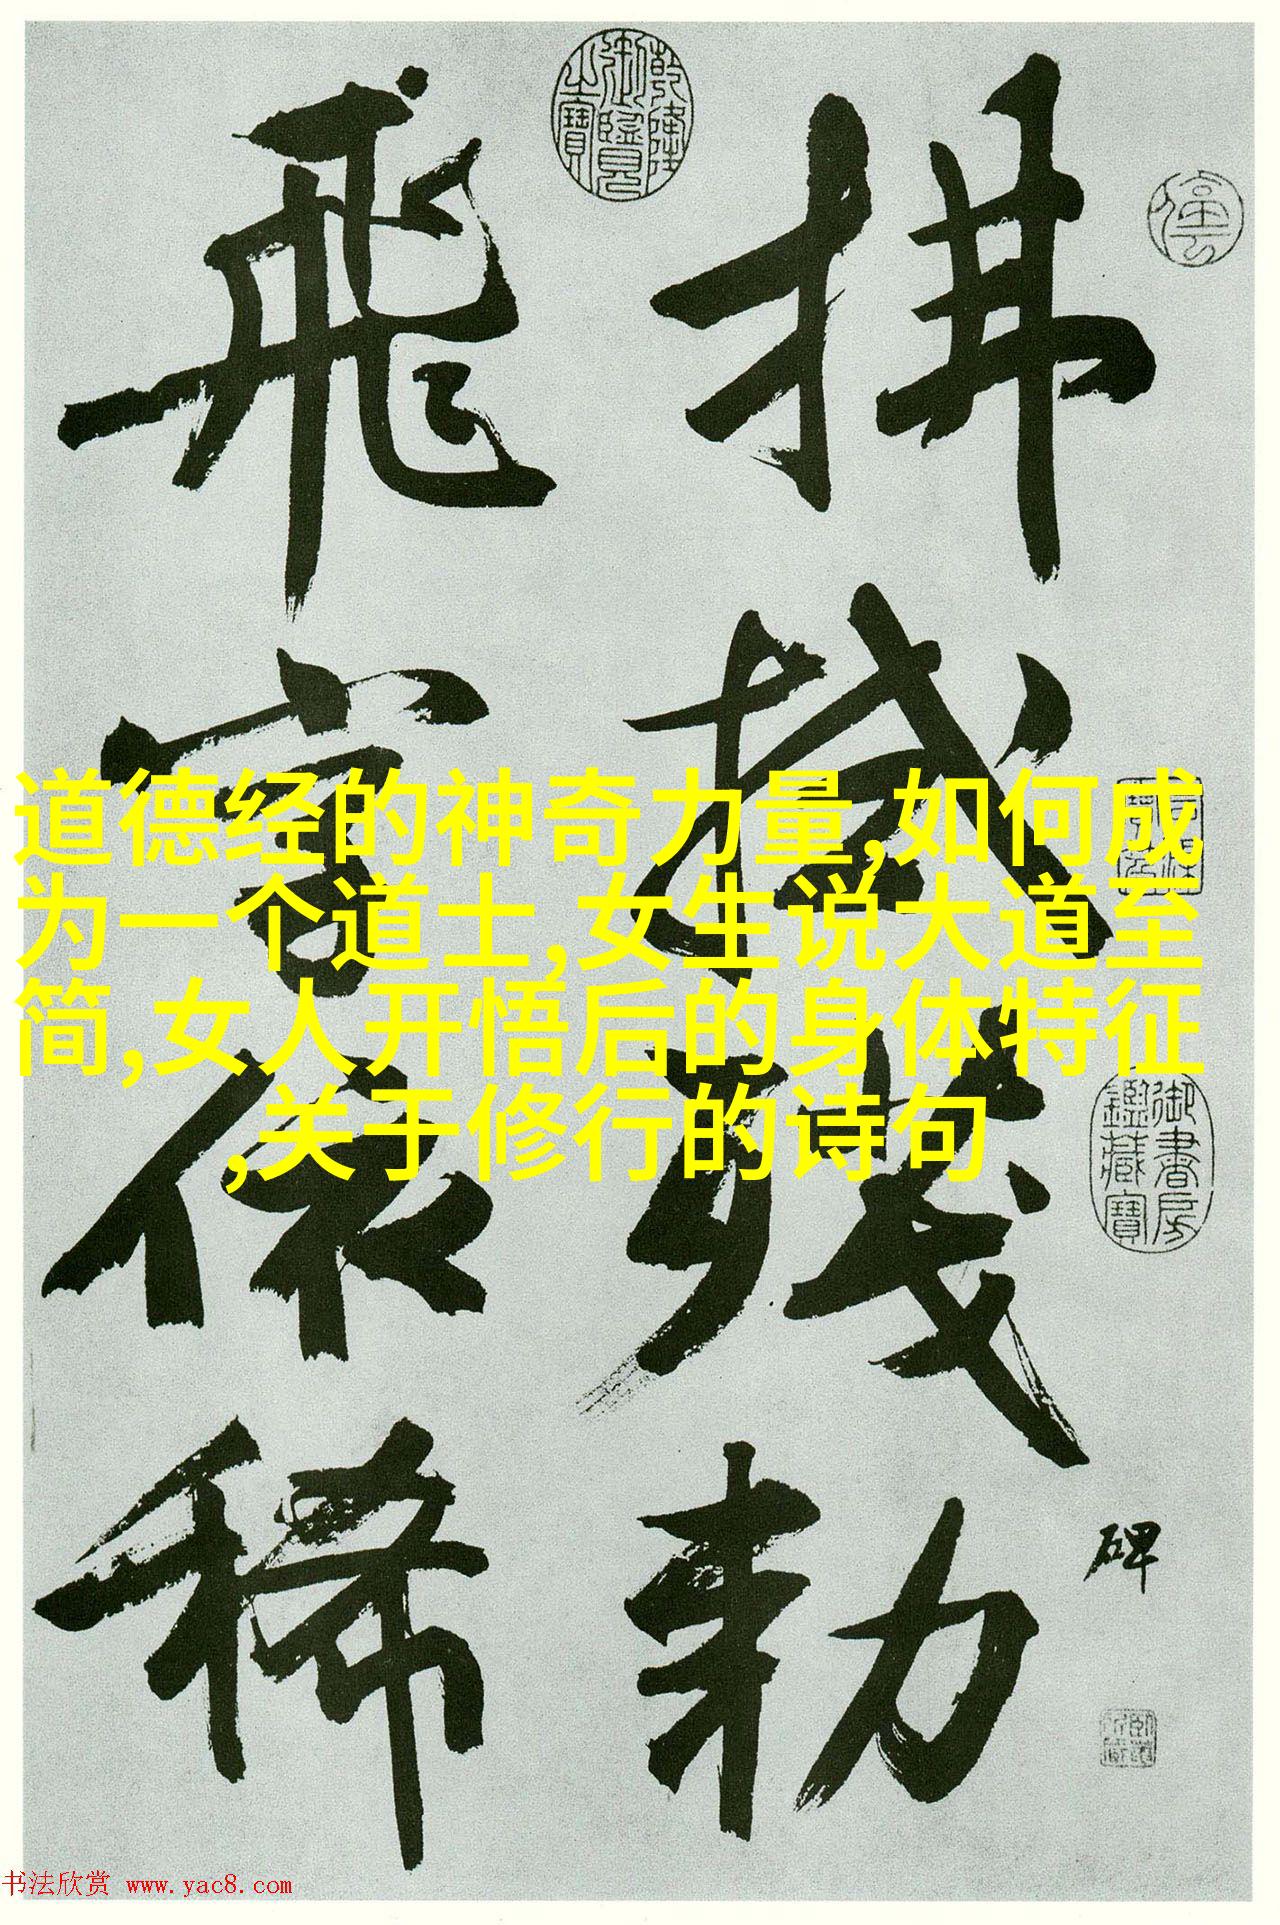 乾隆御覽之寶
拂拭殘勅
碑
飛字依稀
道德经的神奇力量,如何成
为一个道士,女生说大道至
简,女人开悟后的身体特征
,关于修行的诗句
御書房鑑藏寶
书法欣赏 www.yac8.com